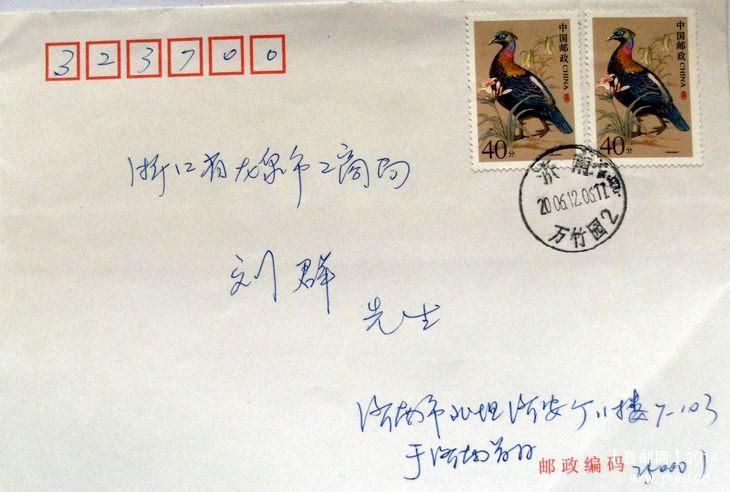 323700
中国邮政 CHINA
40分
中国邮政 CHINA
40分
济南
2006.12.06.17
万竹园2
浙江省龙泉市工商局
刘群
先生
济南市
7-103
于济南
邮政编码 250001